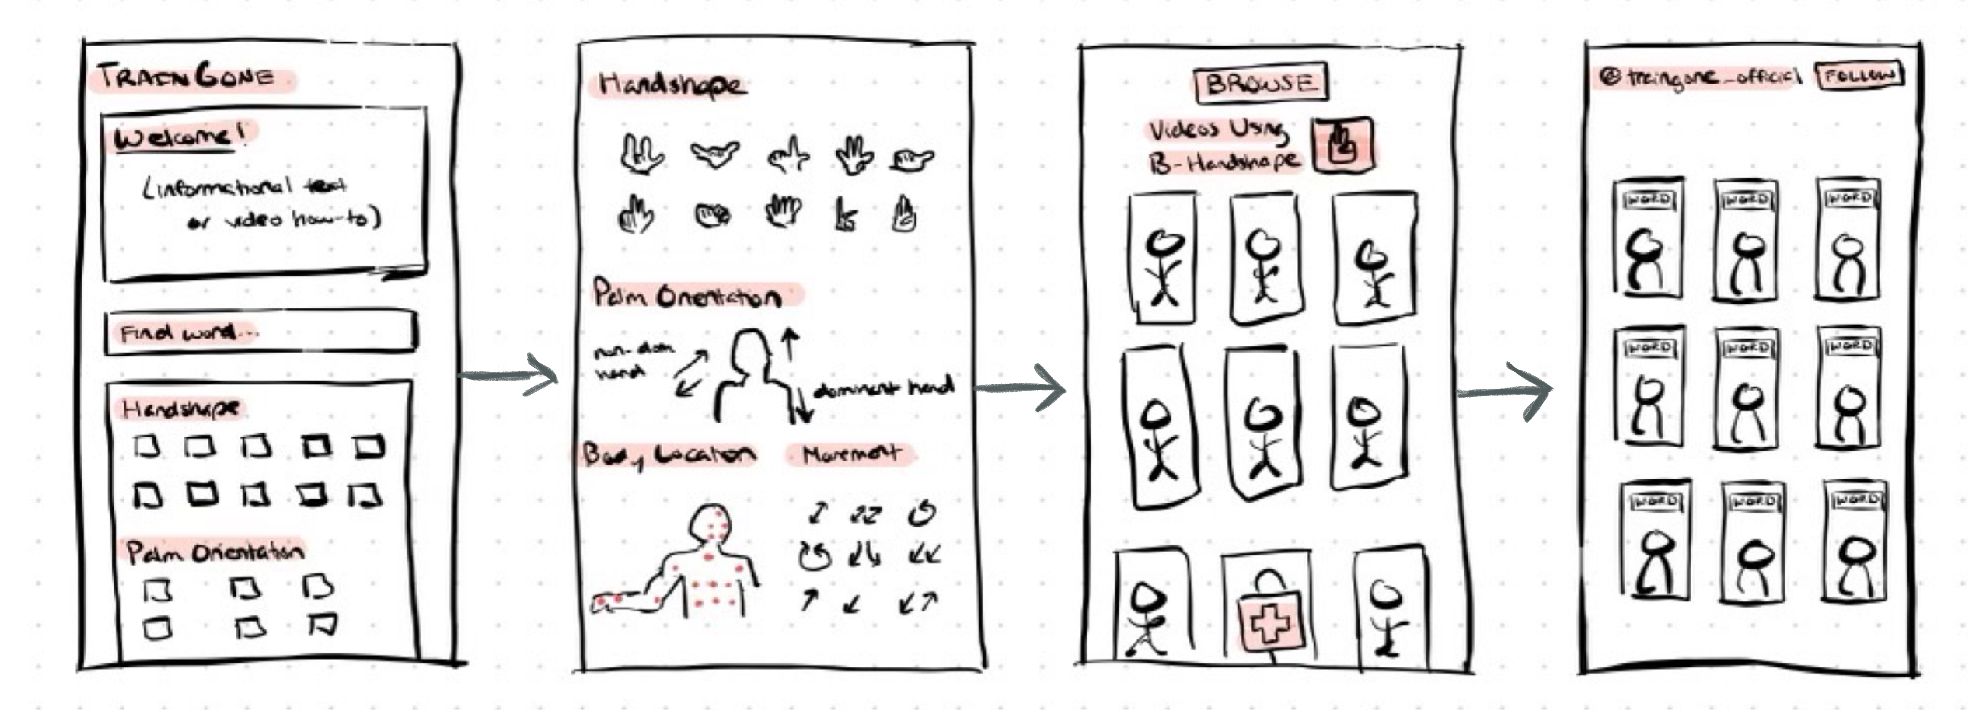 TRAIN GONE
Welcome!
(informational text
or video how-to)
Find word...
Handshape
Palm Orientation
Handshape
Palm Orientation
non-dom
hand
dominant hand
Body Location
Movement
BROWSE
Videos Using
B-Handshape
@traingone_official
FOLLOW
WORD
WORD
WORD
WORD
WORD
WORD
WORD
WORD
WORD